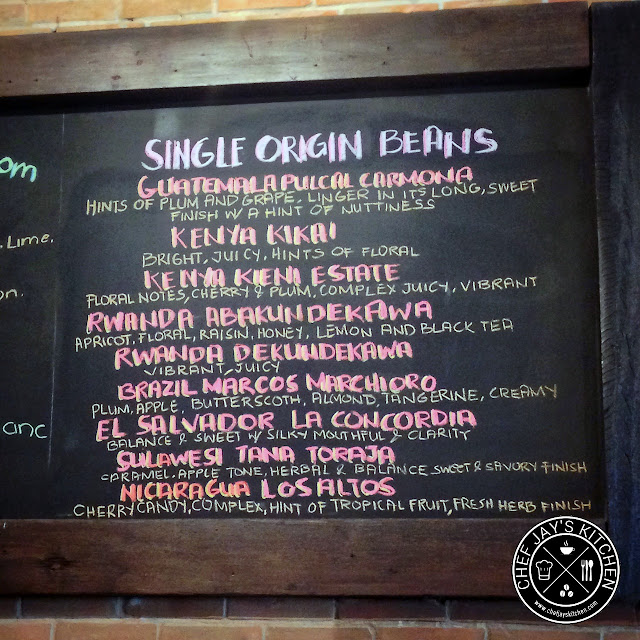 om
. Lime.
on.
anc
SINGLE ORIGIN BEANS
GUATEMALA PULCAL CARMONA
HINTS OF PLUM AND GRAPE. LINGER IN ITS LONG, SWEET
FINISH W/ A HINT OF NUTTINESS
KENYA KIKAI
BRIGHT, JUICY, HINTS OF FLORAL
KENYA KIENI ESTATE
FLORAL NOTES, CHERRY & PLUM, COMPLEX JUICY, VIBRANT
RWANDA ABAKUNDEKAWA
APRICOT, FLORAL, RAISIN, HONEY, LEMON AND BLACK TEA
RWANDA DEKUNDEKAWA
VIBRANT, JUICY
BRAZIL MARCOS MARCHIORO
PLUM, APPLE, BUTTERSCOTH, ALMOND, TANGERINE, CREAMY
EL SALVADOR LA CONCORDIA
BALANCE & SWEET W/ SILKY MOUTHFUL & CLARITY
SULAWESI TANA TORAJA
CARAMEL, APPLE TONE, HERBAL & BALANCE SWEET & SAVORY FINISH
NICARAGUA LOS ALTOS
CHERRY CANDY, COMPLEX, HINT OF TROPICAL FRUIT, FRESH HERB FINISH
CHEF JAY'S KITCHEN
www.chefjayskitchen.com